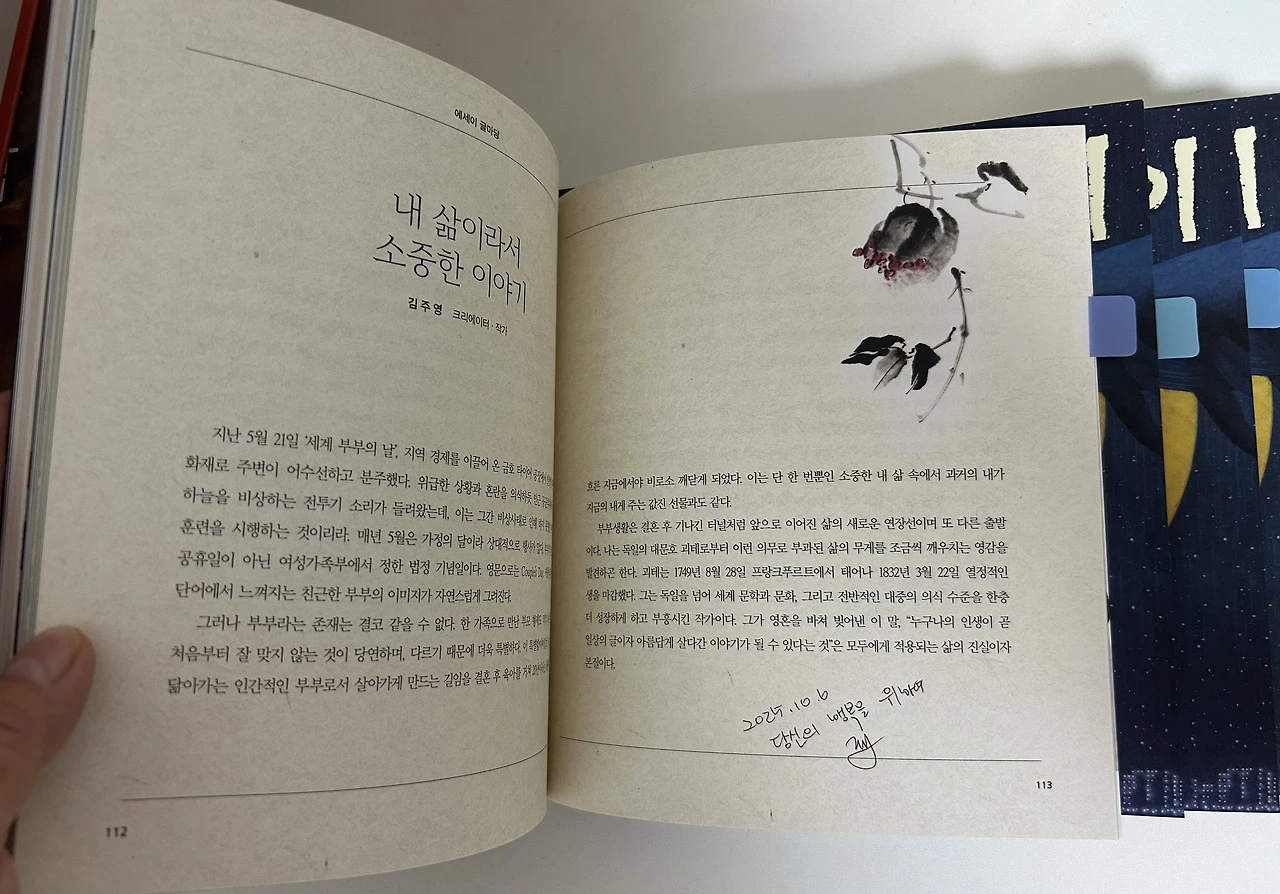 에세이 글마당
내 삶이라서
소중한 이야기
김주영 크리에이터 · 작가
지난 5월 21일 '세계 부부의 날', 지역 경제를 이끌어 온 금호 타이어 공장에서
화재로 주변이 어수선하고 분주했다. 위급한 상황과 혼란을 의식하듯 인근
하늘을 비상하는 전투기 소리가 들려왔는데, 이는 그간 비상사태로 인해
훈련을 시행하는 것이리라. 매년 5월은 가정의 달이라 상대적으로 행사가 많다.
공휴일이 아닌 여성가족부에서 정한 법정 기념일이다. 영문으로는 Couple's Day
단어에서 느껴지는 친근한 부부의 이미지가 자연스럽게 그려진다.
그러나 부부라는 존재는 결코 같을 수 없다. 한 가족으로 만난 부모
처음부터 잘 맞지 않는 것이 당연하며, 다르기 때문에 더욱 특별하다. 이
닮아가는 인간적인 부부로서 살아가게 만드는 길임을 결혼 후 육아를 거쳐
112
흐른 지금에서야 비로소 깨닫게 되었다. 이는 단 한 번뿐인 소중한 내 삶 속에서 과거의 내가
지금의 내게 주는 값진 선물과도 같다.
부부생활은 결혼 후 기나긴 터널처럼 앞으로 이어진 삶의 새로운 연장선이며 또 다른 출발
이다. 나는 독일의 대문호 괴테로부터 이런 의무로 부과된 삶의 무게를 조금씩 깨우치는 영감을
발견하곤 한다. 괴테는 1749년 8월 28일 프랑크푸르트에서 태어나 1832년 3월 22일 열정적인
생을 마감했다. 그는 독일을 넘어 세계 문학과 문화, 그리고 전반적인 대중의 의식 수준을 한층
더 성장하게 하고 부흥시킨 작가이다. 그가 영혼을 바쳐 빚어낸 이 말, "누구나의 인생이 곧
일상의 글이자 아름답게 살다간 이야기가 될 수 있다는 것"은 모두에게 적용되는 삶의 진실이자
본질이다.
2025.10.6
당신의 행복을 위하여
113